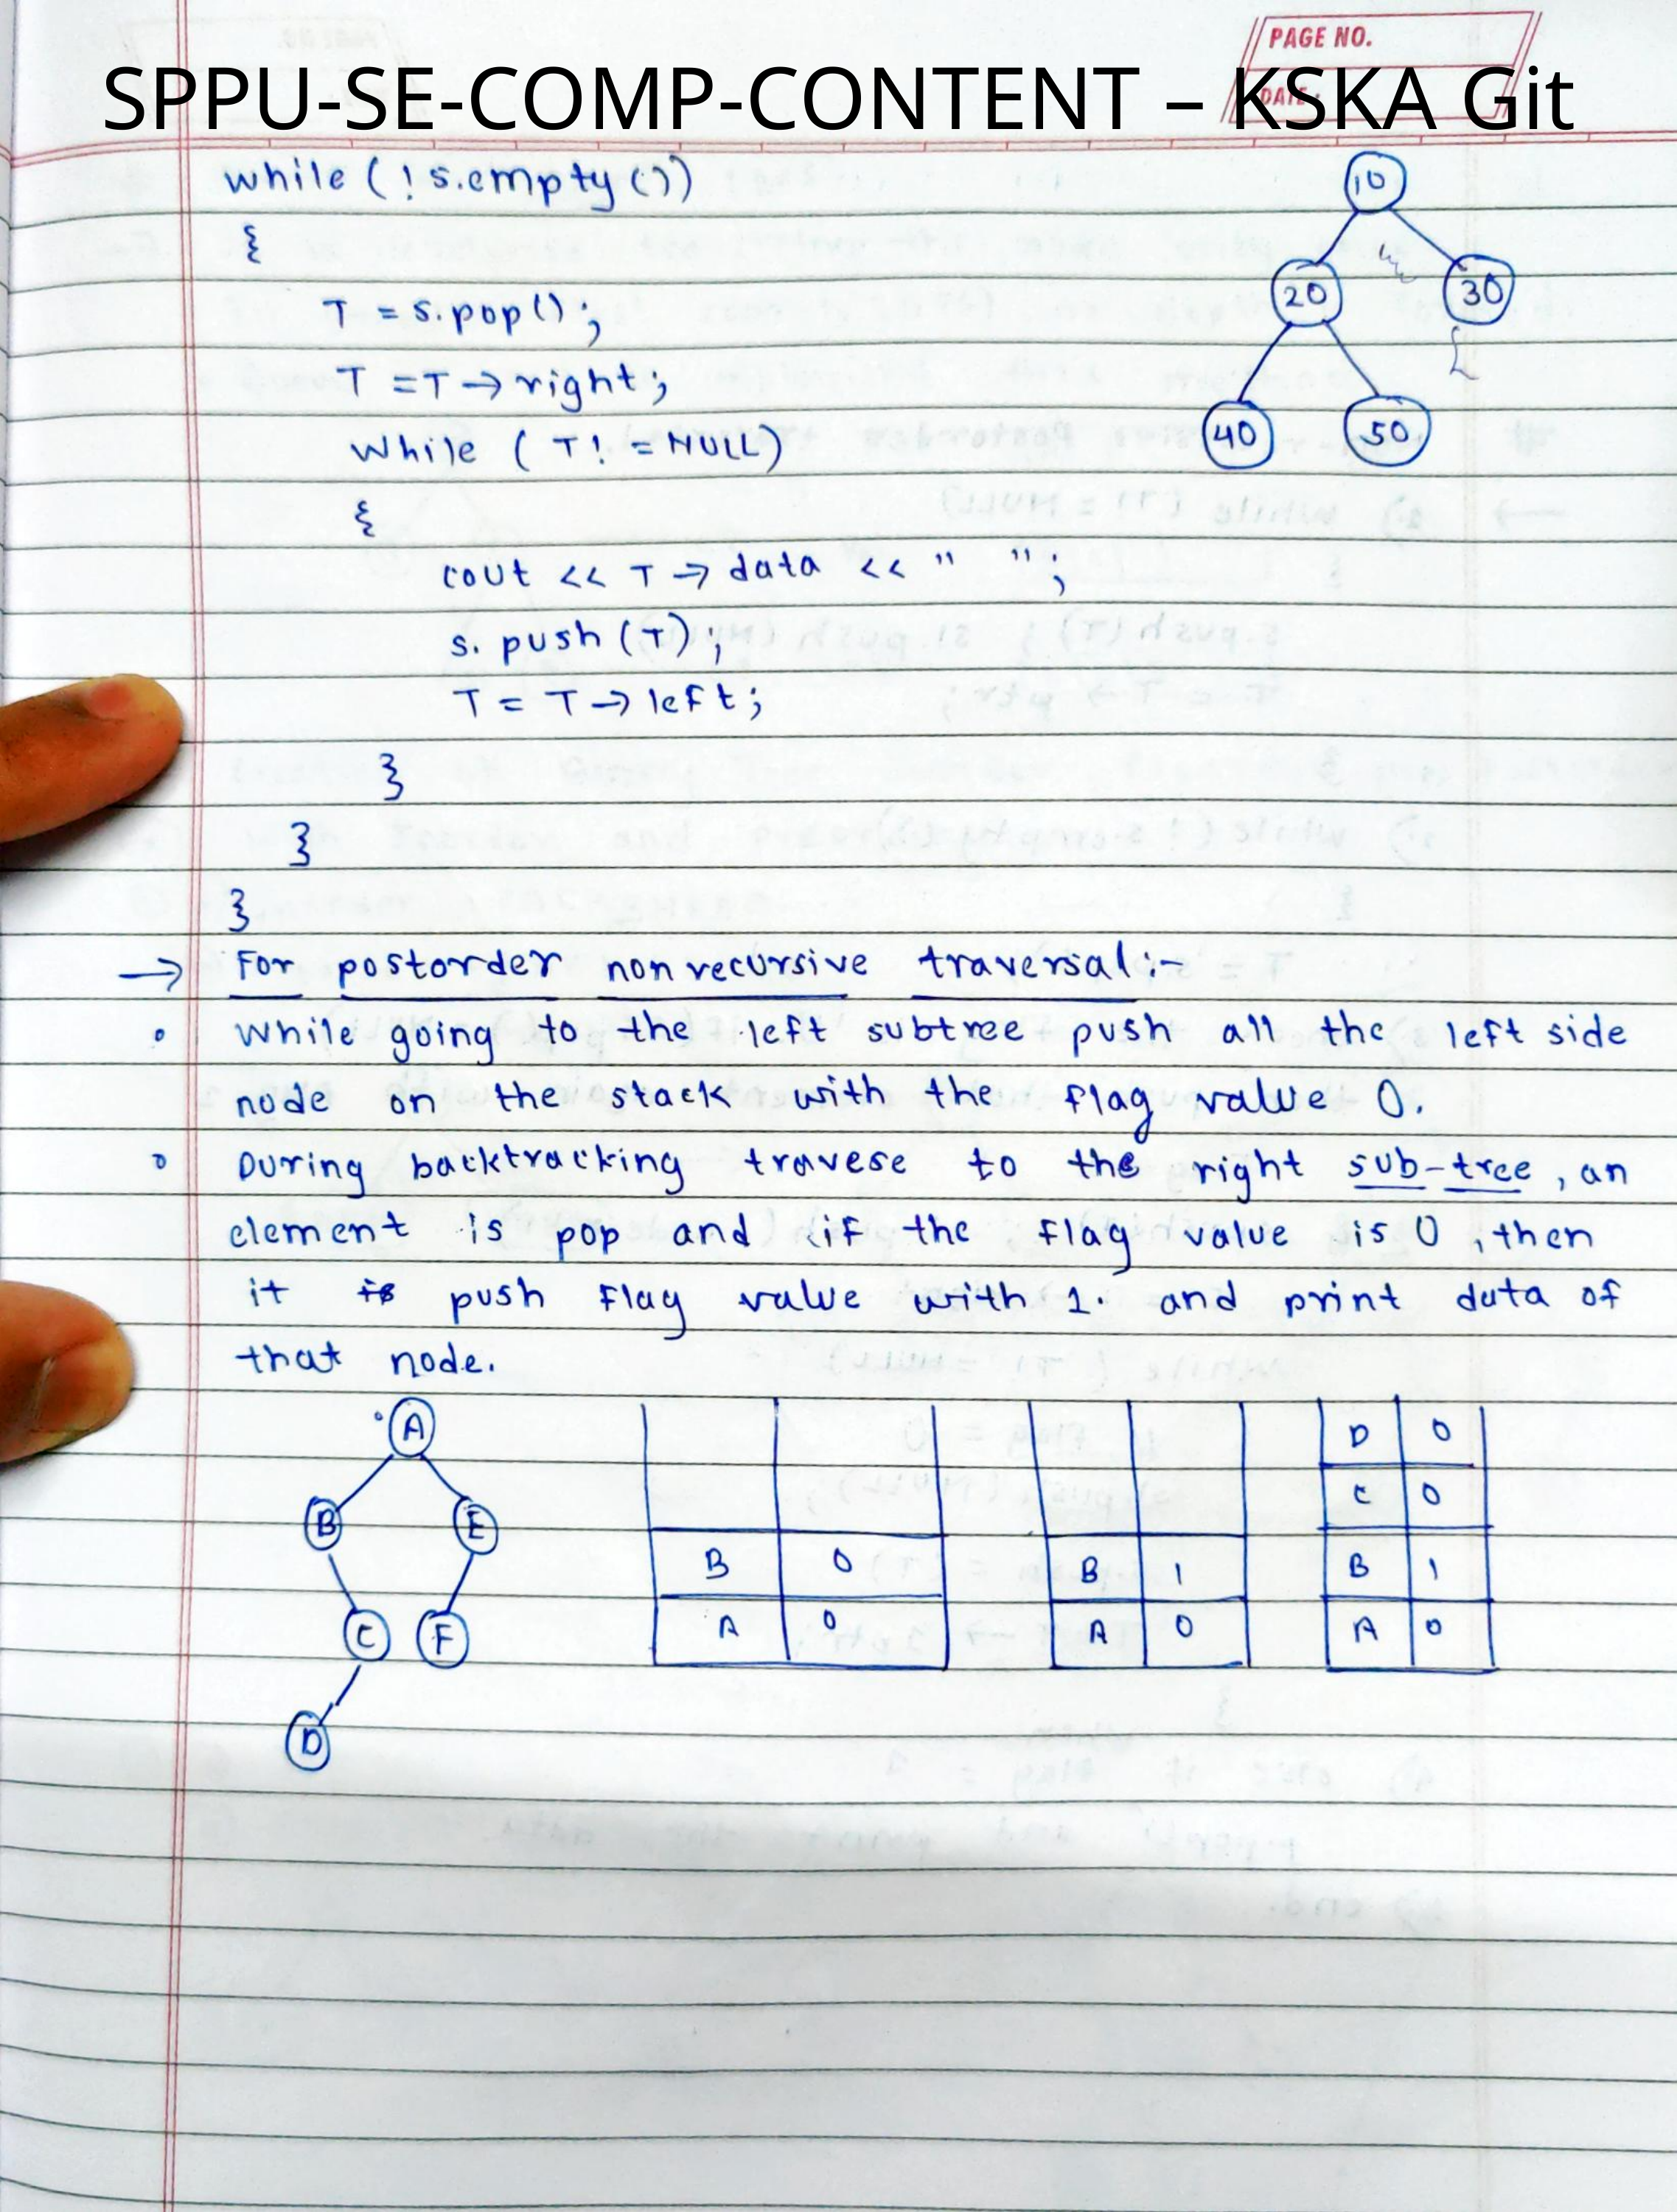 PAGE NO.
DATE :
SPPU-SE-COMP-CONTENT – KSKA Git
while ( ! s.empty ())
{
T = s.pop() ;
T = T → right ;
while ( T! = NULL)
{
cout << T → data << " " ;
s. push (T) ;
T = T → left ;
}
}
}
10
20 30
40 50
→ For postorder non recursive traversal :-
° While going to the left subtree push all the left side
node on the stack with the flag value 0.
° During backtracking travese to the right sub-tree , an
element is pop and if the flag value is 0 , then
it is push flag value with 1. and print data of
that node.
A
B E
C F
D
B 0
A 0
B 1
A 0
D 0
C 0
B 1
A 0